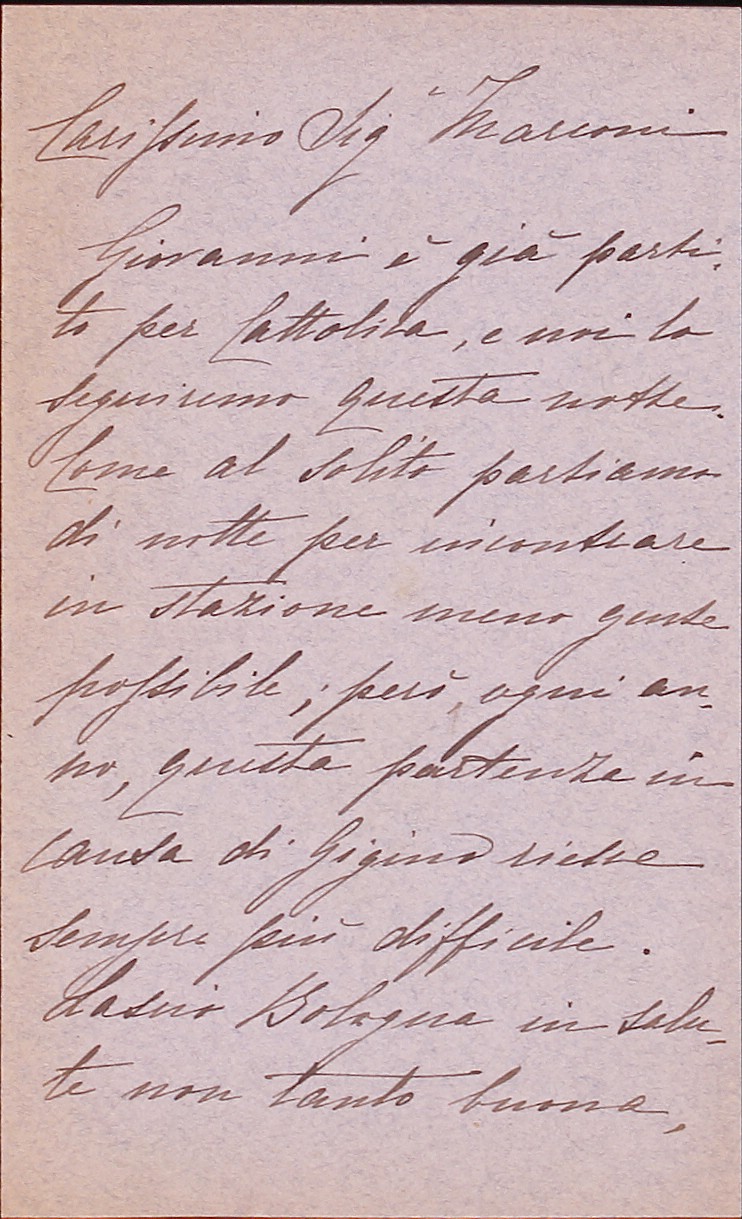 Carissimo Sigʳ Marconi
Giovanni è già parti-
to per Cattolica, e noi lo
seguiremo questa notte.
Come al solito partiamo
di notte per incontrare
in stazione meno gente
possibile; però, ogni an-
no, questa partenza in
causa di Gigino riesce
sempre più difficile.
Lascio Bologna in salu-
te non tanto buona,